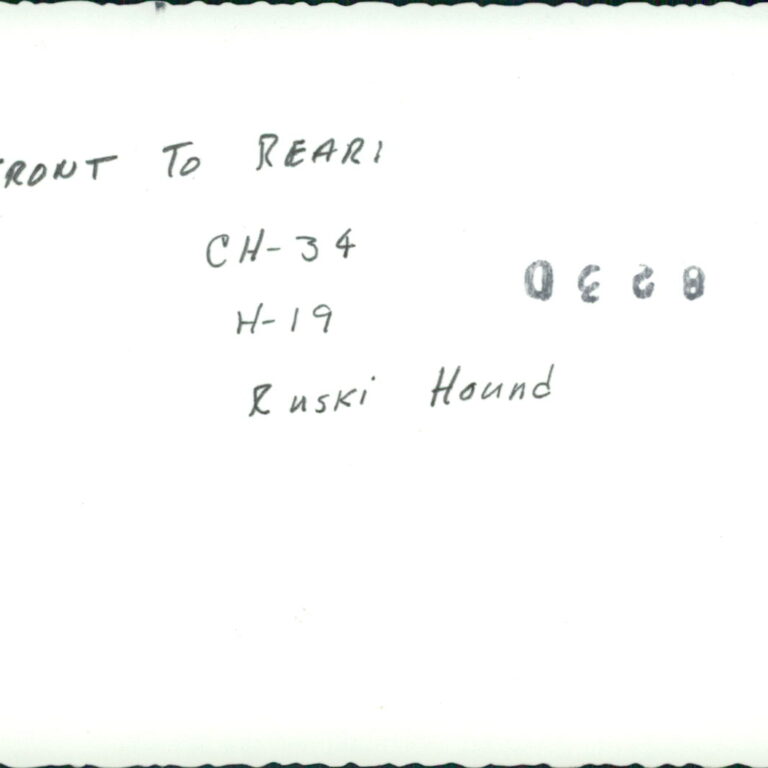 FRONT TO REAR:
CH-34
H-19
Ruski Hound